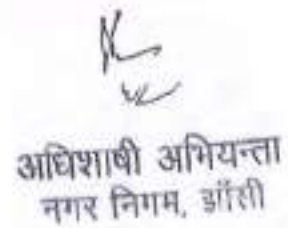 अधिशाषी अभियन्ता
नगर निगम, झाँसी